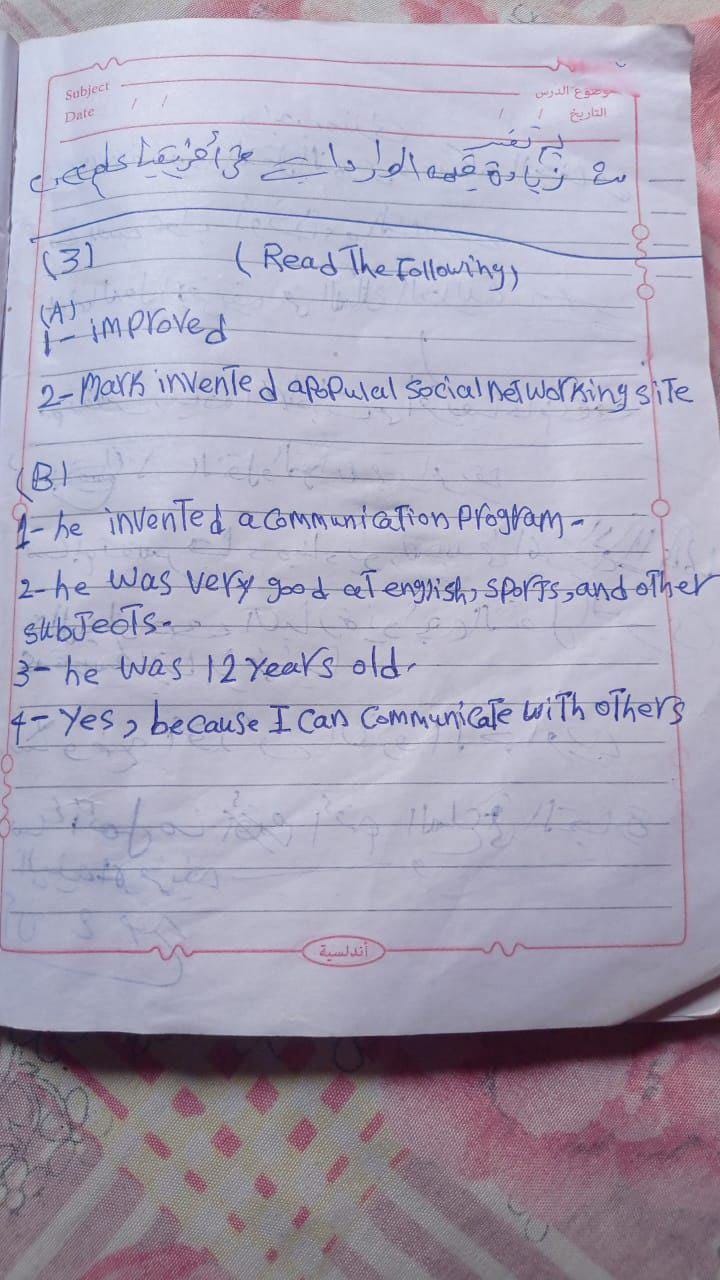 Subject
موضوع الدرس
Date / /
/ / التاريخ
مع زيادة قيمة الواردات
(3) (Read The Following)
(A)
1- improved
2- Mark invented apopulal social networking site
(B)
1- he invented a communication program-
2- he was very good at english, sports, and other
subjects.
3- he was 12 years old.
4- Yes, because I can communicate with others
أندلسية